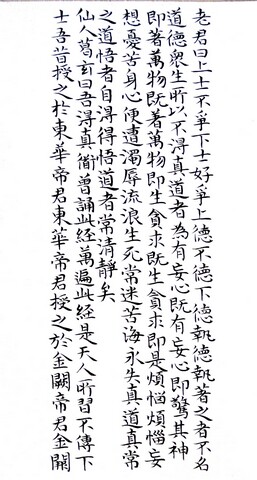 老君曰上士不爭下士好爭上德不德下德執德執著之者不名
道德衆生所以不淂真道者為有妄心既有妄心即驚其神
即著萬物既著萬物即生貪求既生貪求即是煩惱煩惱妄
想憂苦身心便遭濁辱流浪生死常迷苦海永失真道真常
之道悟者自淂得悟道者常清靜矣
仙人葛玄曰吾淂真衟曾誦此經萬遍此經是天人所習不傳下
士吾昔授之於東華帝君東華帝君授之於金闕帝君金闕